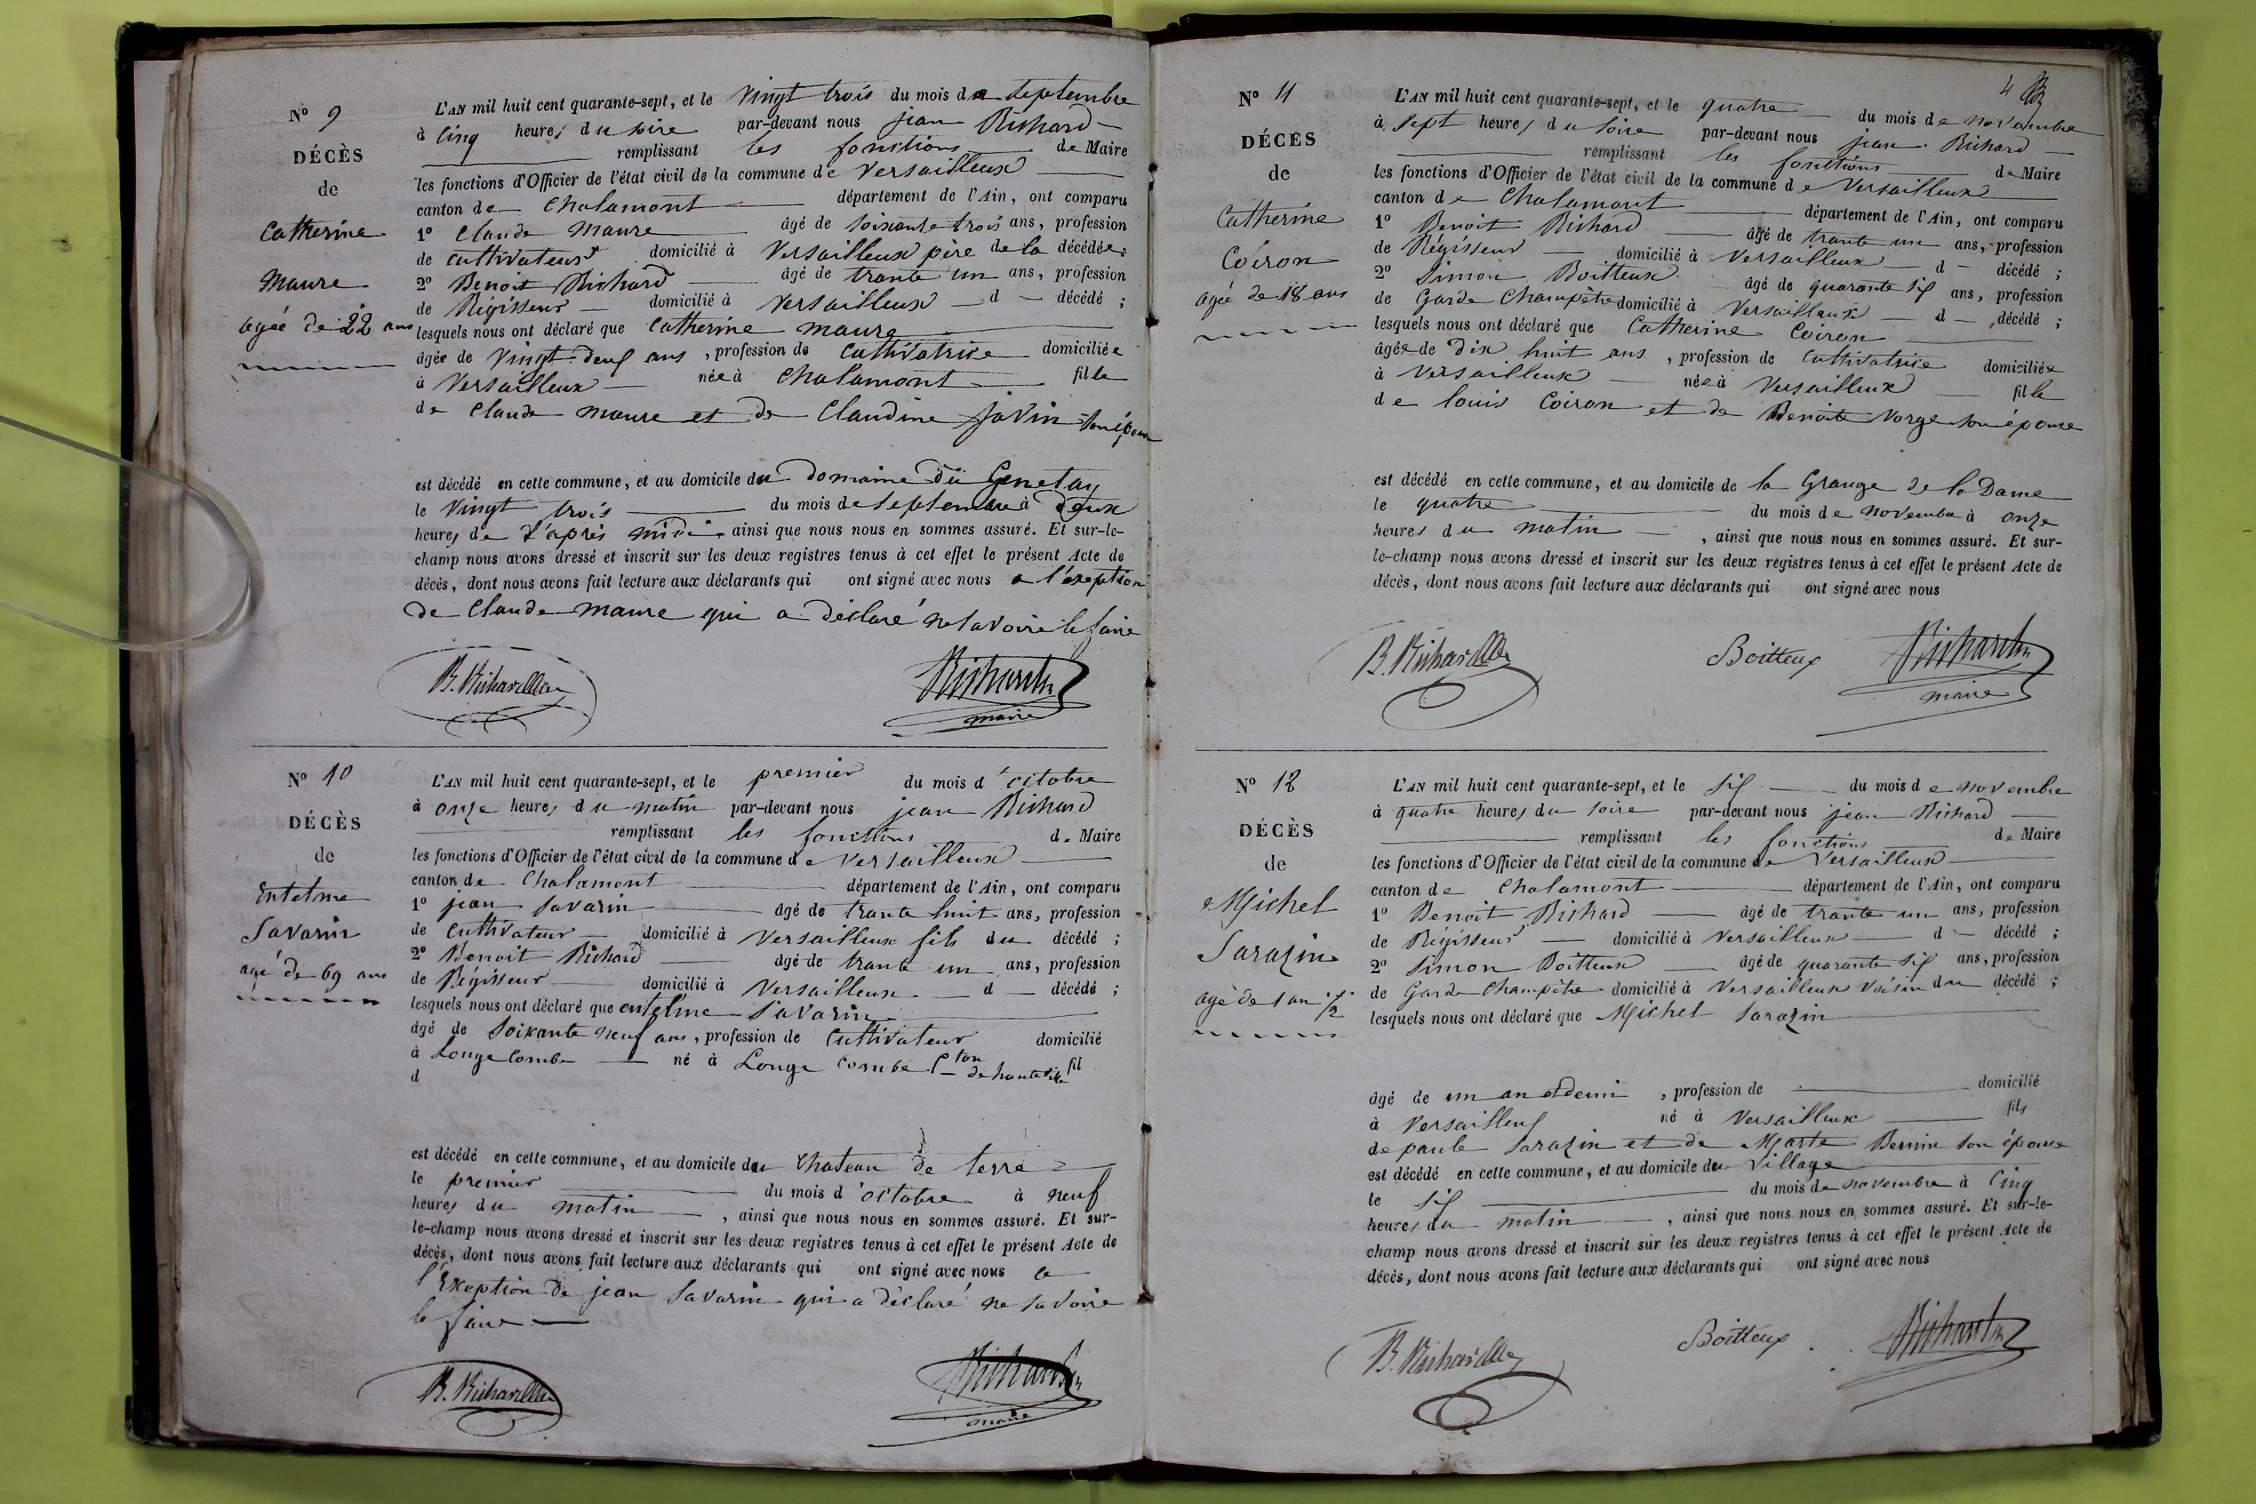 N° 9
DÉCÈS
de
Catherine
Maure
agée de 22 ans
L'AN mil huit cent quarante-sept, et le vingt trois du mois de septembre
à cinq heures du soire par-devant nous jean Richard
remplissant les fonctions de Maire
les fonctions d'Officier de l'état civil de la commune de Versailleux
canton de Chalamont département de l'Ain, ont comparu
1° Claude Maure âgé de soixante trois ans, profession
de cultivateur domicilié à Versailleux père de la décédée;
2° Benoit Richard âgé de trante un ans, profession
de Régisseur domicilié à Versailleux d décédé;
lesquels nous ont déclaré que Catherine Maure
âgée de vingt-deuf ans, profession de cultivatrice domiciliée
à Versailleux née à Chalamont fille
de Claude Maure et de Claudine javin son épouse
est décédé en cette commune, et au domicile du domaine du Genetay
le vingt trois du mois de septembre à deux
heures de l'après midi ainsi que nous nous en sommes assuré. Et sur-le-
champ nous avons dressé et inscrit sur les deux registres tenus à cet effet le présent Acte de
décès, dont nous avons fait lecture aux déclarants qui ont signé avec nous a l'exeption
de Claude Maure qui a déclaré ne savoire le faire
B. Richard
Richard
maire
N° 10
DÉCÈS
de
Entelme
Savarin
agé de 69 ans
L'AN mil huit cent quarante-sept, et le premier du mois d'octobre
à onze heures du matin par-devant nous jean Richard
remplissant les fonctions de Maire
les fonctions d'Officier de l'état civil de la commune de Versailleux
canton de Chalamont département de l'Ain, ont comparu
1° jean Savarin âgé de trante huit ans, profession
de cultivateur domicilié à Versailleux fils du décédé;
2° Benoit Richard âgé de trante un ans, profession
de Régisseur domicilié à Versailleux d décédé;
lesquels nous ont déclaré que entelme Savarin
âgé de soixante neuf ans, profession de cultivateur domicilié
à Longe Combe né à Longe Combe Cton de hauteville fil
d
est décédé en cette commune, et au domicile du Chateau de terre
le premier du mois d'octobre à neuf
heures du matin, ainsi que nous nous en sommes assuré. Et sur-
le-champ nous avons dressé et inscrit sur les deux registres tenus à cet effet le présent Acte de
décès, dont nous avons fait lecture aux déclarants qui ont signé avec nous a
l'Exeption de jean Savarin qui a déclaré ne savoire
le faire
B. Richard
Richard
maire
4
N° 11
DÉCÈS
de
Catherine
Coiron
agée de 18 ans
L'AN mil huit cent quarante-sept, et le quatre du mois de novembre
à sept heures du soire par-devant nous jean Richard
remplissant les fonctions de Maire
les fonctions d'Officier de l'état civil de la commune de Versailleux
canton de Chalamont département de l'Ain, ont comparu
1° Benoit Richard âgé de trante un ans, profession
de Régisseur domicilié à Versailleux d décédé;
2° Simon Boitteux âgé de quarante sif ans, profession
de Garde Champêtre domicilié à Versailleux d décédé;
lesquels nous ont déclaré que Catherine Coiron
âgée de dix huit ans, profession de cultivatrice domiciliée
à Versailleux née à Versailleux fille
de louis Coiron et de Benoite Vorge son épouse
est décédé en cette commune, et au domicile de la Grange de la Dame
le quatre du mois de novembre à onze
heures du matin, ainsi que nous nous en sommes assuré. Et sur-
le-champ nous avons dressé et inscrit sur les deux registres tenus à cet effet le présent Acte de
décès, dont nous avons fait lecture aux déclarants qui ont signé avec nous
B. Richard Boitteux Richard
maire
N° 12
DÉCÈS
de
Michel
Sarazin
agé de 1 an 1/2
L'AN mil huit cent quarante-sept, et le sif du mois de novembre
à quatre heures du soire par-devant nous jean Richard
remplissant les fonctions de Maire
les fonctions d'Officier de l'état civil de la commune de Versailleux
canton de Chalamont département de l'Ain, ont comparu
1° Benoit Richard âgé de trante un ans, profession
de Régisseur domicilié à Versailleux d décédé;
2° Simon Boitteux âgé de quarante sif ans, profession
de Garde Champêtre domicilié à Versailleux voisin du décédé;
lesquels nous ont déclaré que Michel Sarazin
âgé de un an et demi, profession de domicilié
à Versailleuf né à Versailleux fils
de paule Sarazin et de Marte Bernin son épouse
est décédé en cette commune, et au domicile du Village
le sif du mois de novembre à cinq
heures du matin, ainsi que nous nous en sommes assuré. Et sur-le-
champ nous avons dressé et inscrit sur les deux registres tenus à cet effet le présent Acte de
décès, dont nous avons fait lecture aux déclarants qui ont signé avec nous
B. Richard Boitteux Richard